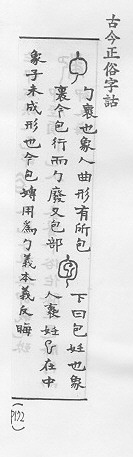 古今正俗字詁
勹裹也象人曲形有所包
裹今包行而勹廢又包部
下曰包妊也象
人裹妊巳在中
象子未成形也今包轉用為勹義本義反晦
P192